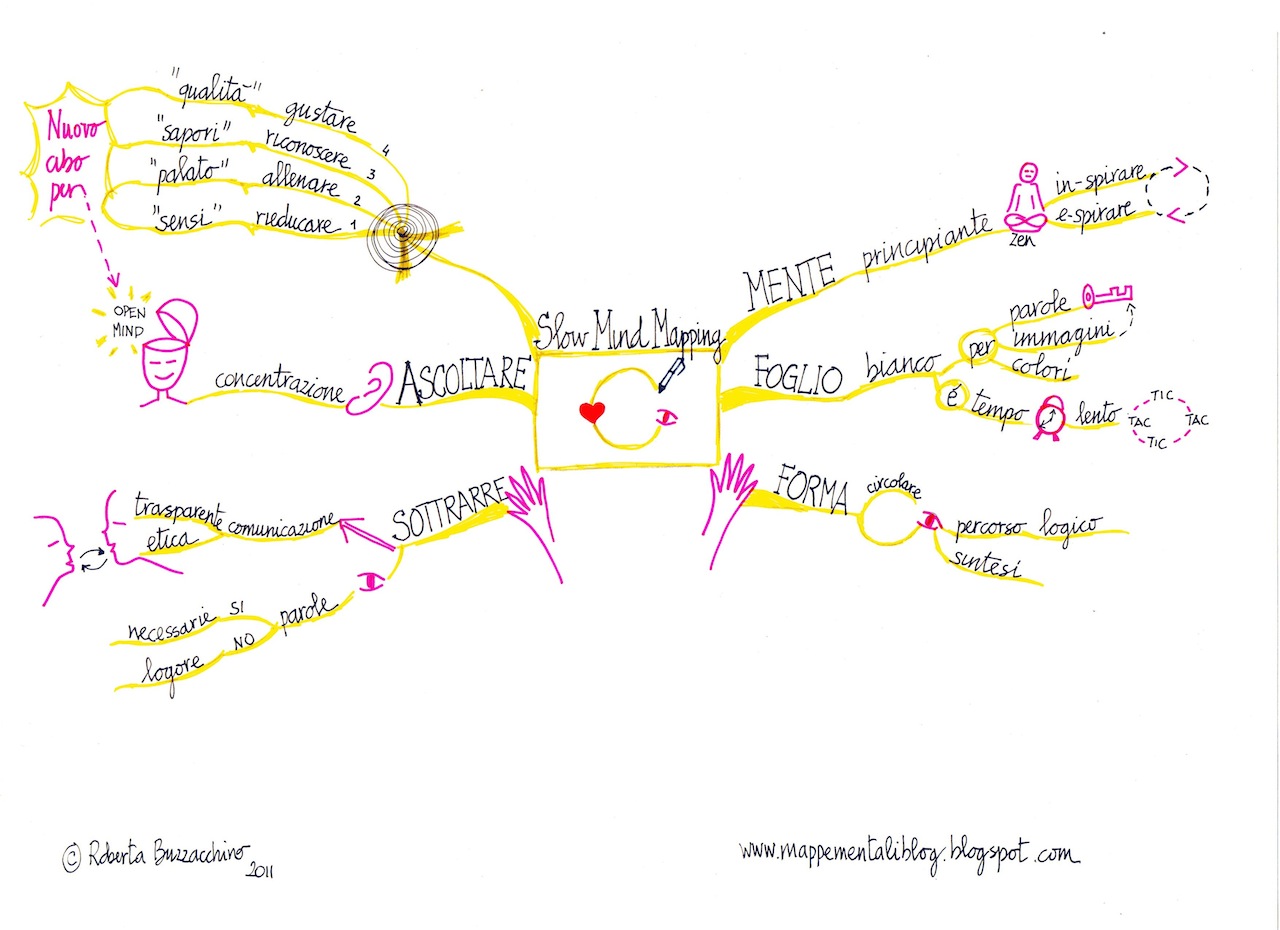 Slow Mind Mapping
MENTE principiante
zen
in-spirare
e-spirare
FOGLIO bianco
per
parole
immagini
colori
é tempo lento
TIC
TAC
TIC
TAC
FORMA circolare
percorso logico
sintesi
SOTTRARRE
comunicazione
trasparente
etica
parole
SI necessarie
NO logore
ASCOLTARE
concentrazione
OPEN
MIND
1 rieducare "sensi"
2 allenare "palato"
3 riconoscere "sapori"
4 gustare "qualità"
Nuovo
cibo
per
© Roberta Buzzacchino
2011
www.mappementaliblog.blogspot.com